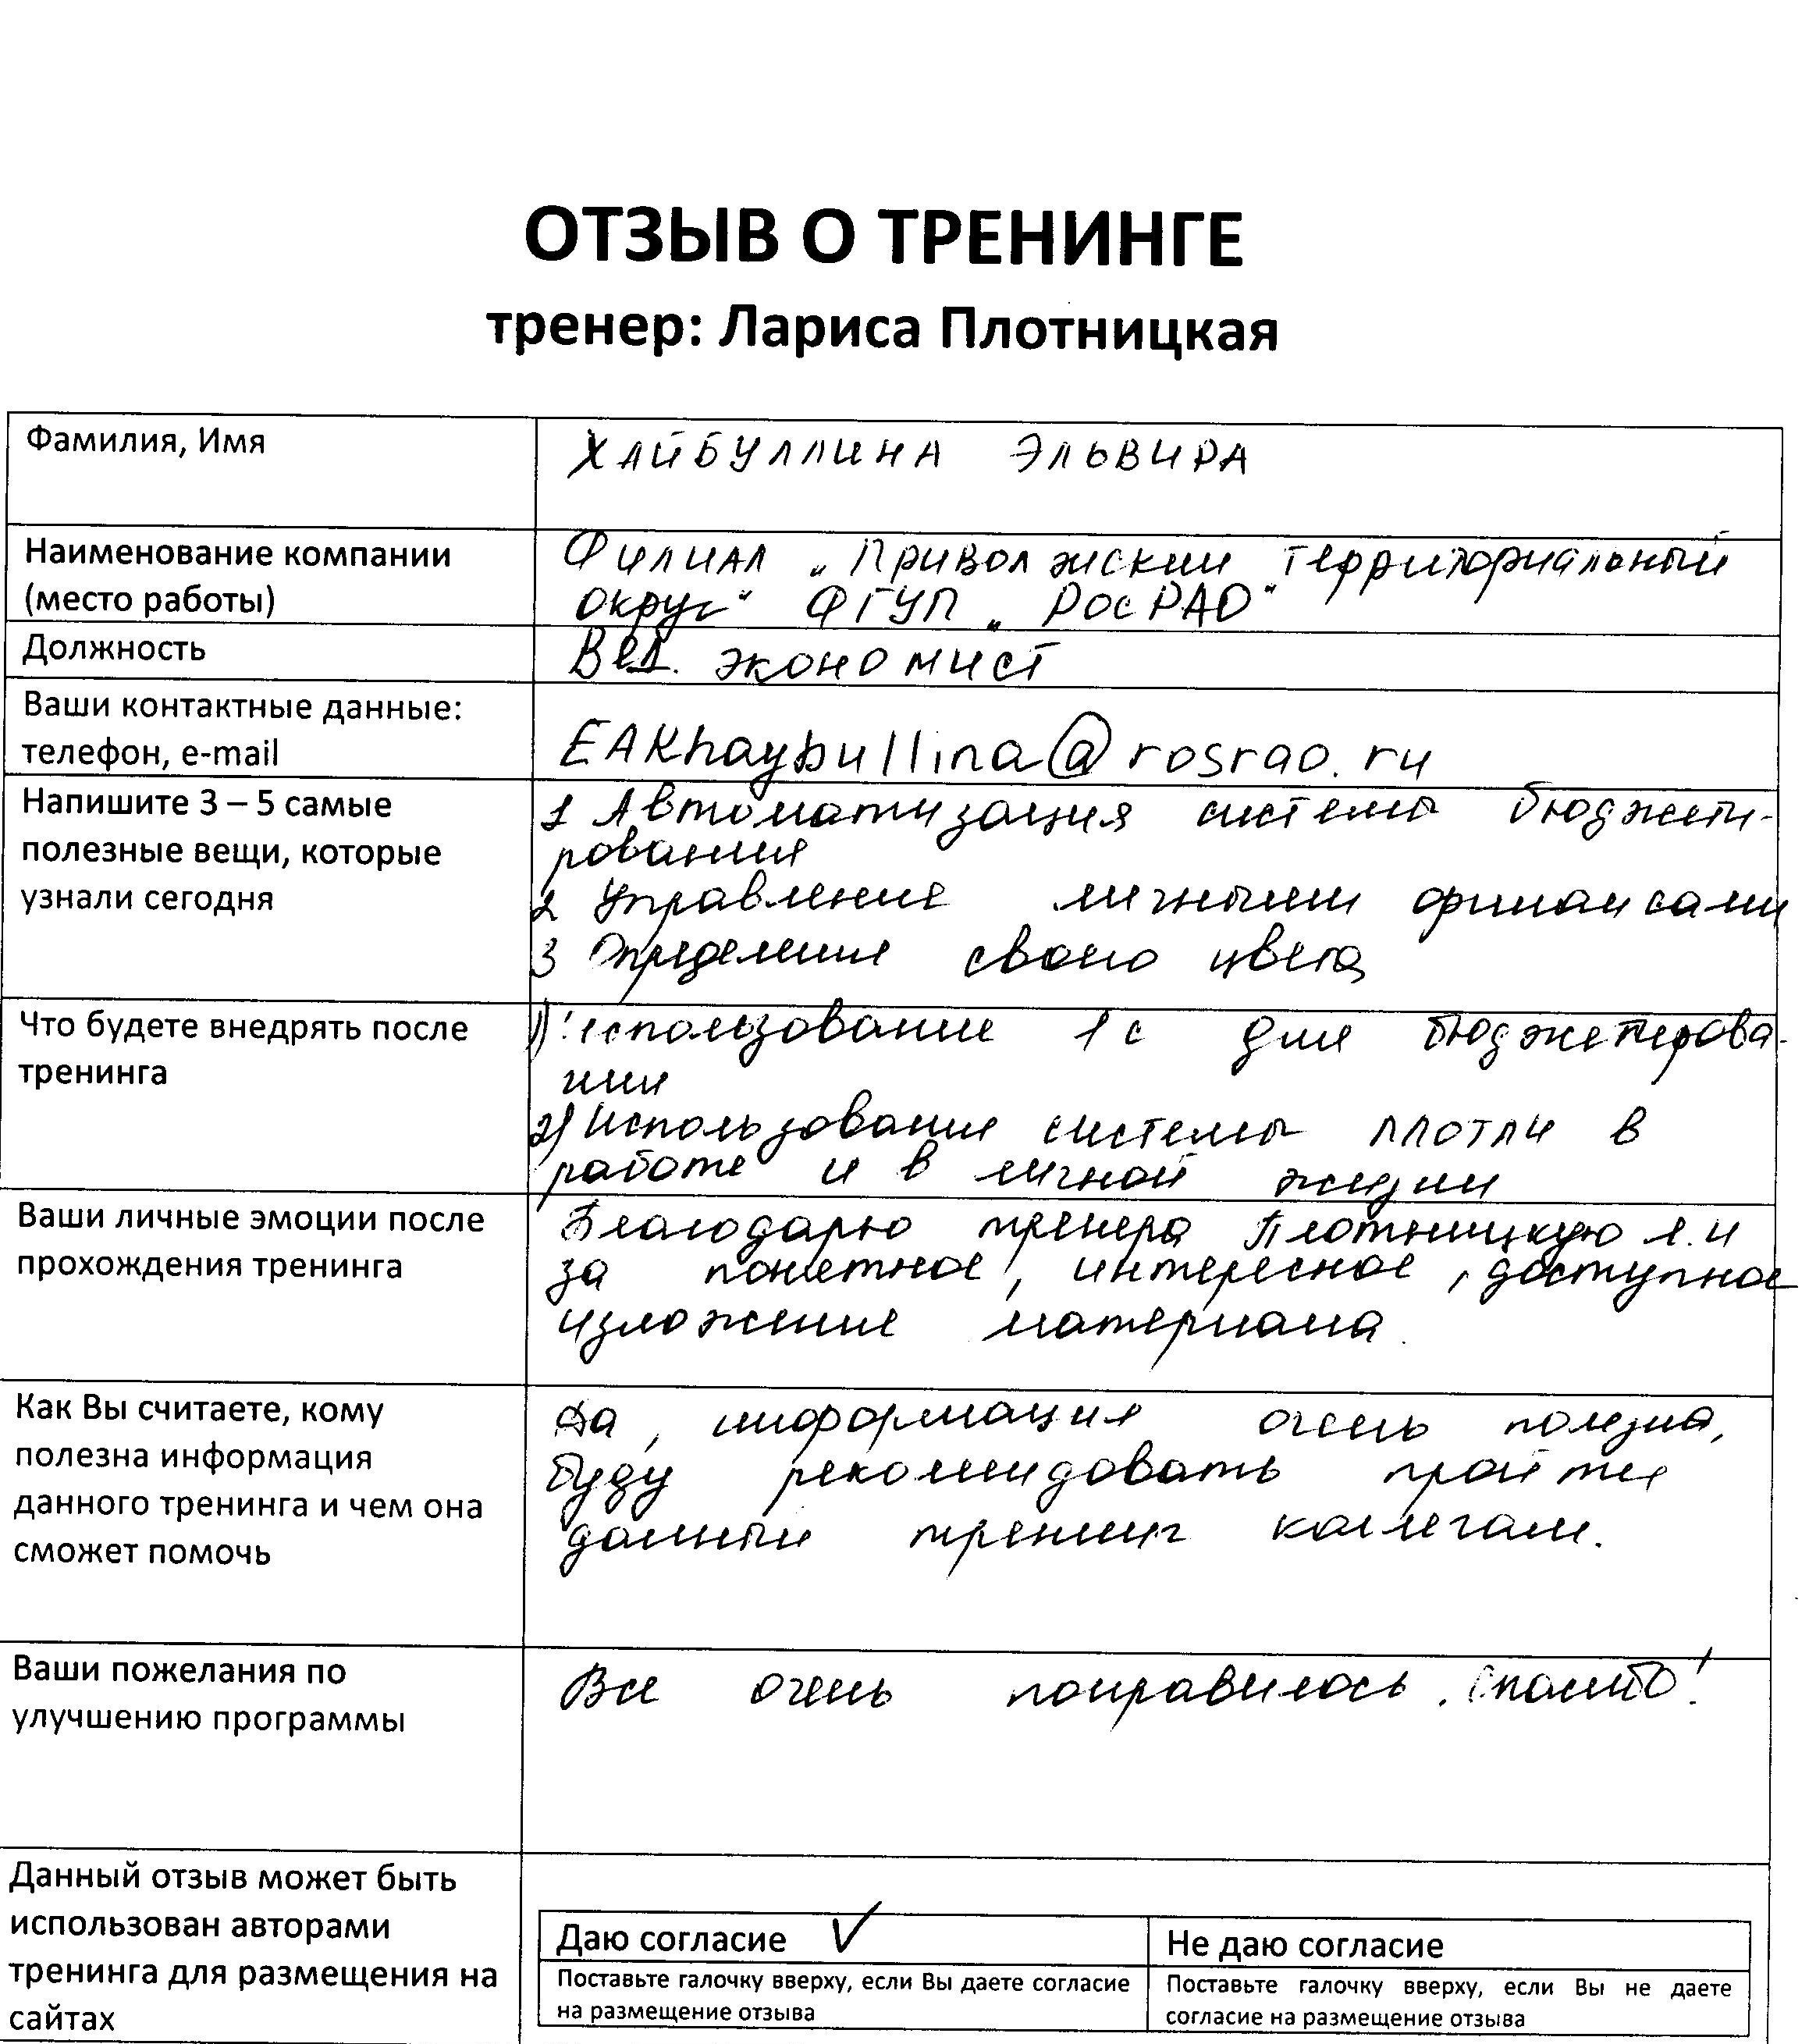 ОТЗЫВ О ТРЕНИНГЕ
тренер: Лариса Плотницкая
Фамилия, Имя
ХАЙБУЛЛИНА ЭЛЬВИРА
Наименование компании
(место работы)
Филиал "Приволжский территориальный
округ" ФГУП "РосРАО"
Должность
Вед. экономист
Ваши контактные данные:
телефон, e-mail
EAKhaybullina@rosrao.ru
Напишите 3 – 5 самые
полезные вещи, которые
узнали сегодня
1 Автоматизация системы бюджети-
рования
2 Управление личными финансами
3 Определение своего цвета
Что будете внедрять после
тренинга
1) Использование 1с для бюджетирова-
нии
2) Использование системы ПЛОТЛИ в
работе и в личной жизни
Ваши личные эмоции после
прохождения тренинга
Благодарю тренера Плотницкую Л.И
за понятное, интересное, доступное
изложение материала.
Как Вы считаете, кому
полезна информация
данного тренинга и чем она
сможет помочь
Да, информация очень полезна,
буду рекомендовать пройти
данный тренинг коллегам.
Ваши пожелания по
улучшению программы
Все очень понравилось. Спасибо!
Данный отзыв может быть
использован авторами
тренинга для размещения на
сайтах
Даю согласие ✓
Поставьте галочку вверху, если Вы даете согласие
на размещение отзыва
Не даю согласие
Поставьте галочку вверху, если Вы не даете
согласие на размещение отзыва